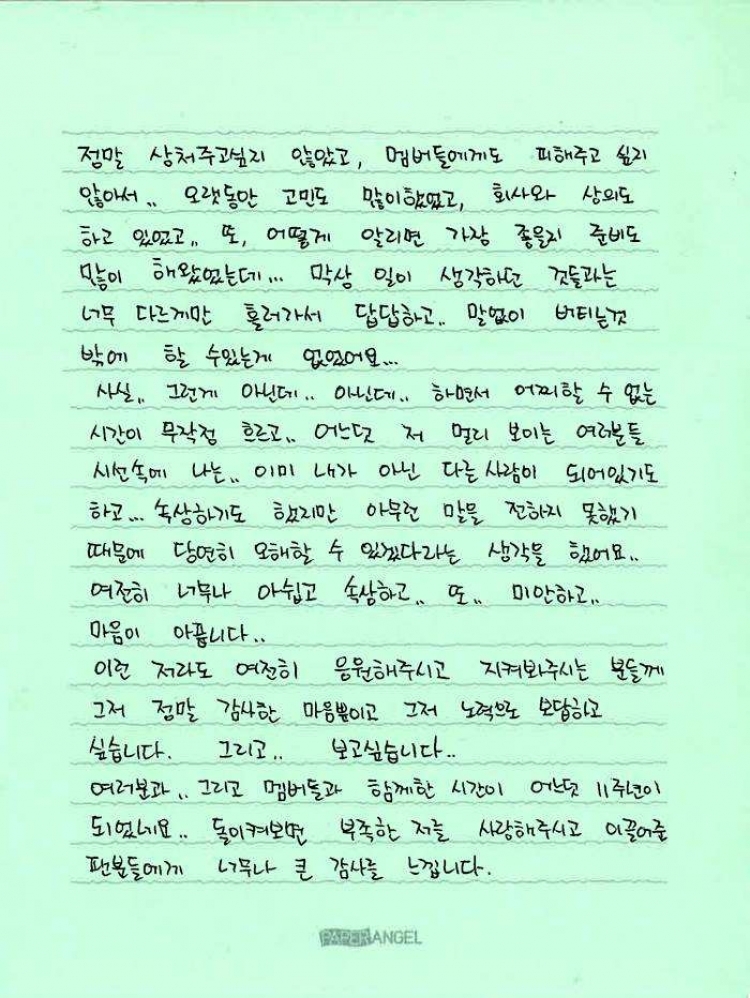 정말 상처주고싶지 않았고, 멤버들에게도 피해주고 싶지
않아서.. 오랫동안 고민도 많이했었고, 회사와 상의도
하고 있었고.. 또, 어떻게 알리면 가장 좋을지 준비도
많이 해왔었는데... 막상 일이 생각하던 것들과는
너무 다르게만 흘러가서 답답하고.. 말없이 버티는것
밖에 할 수있는게 없었어요...
사실.. 그런게 아닌데.. 아닌데.. 하면서 어찌할 수 없는
시간이 무작정 흐르고.. 어느덧 저 멀리 보이는 여러분들
시선속에 나는.. 이미 내가 아닌 다른사람이 되어있기도
하고... 속상하기도 했지만 아무런 말을 전하지 못했기
때문에 당연히 오해할 수 있겠다라는 생각을 했어요..
여전히 너무나 아쉽고 속상하고.. 또.. 미안하고..
마음이 아픕니다..
이런 저라도 여전히 응원해주시고 지켜봐주시는 분들께
그저 정말 감사한 마음뿐이고 그저 노력으로 보답하고
싶습니다. 그리고.. 보고싶습니다..
여러분과.. 그리고 멤버들과 함께한 시간이 어느덧 11주년이
되었네요.. 돌이켜보면 부족한 저를 사랑해주시고 이끌어준
팬분들에게 너무나 큰 감사를 느낍니다.
PAPER ANGEL